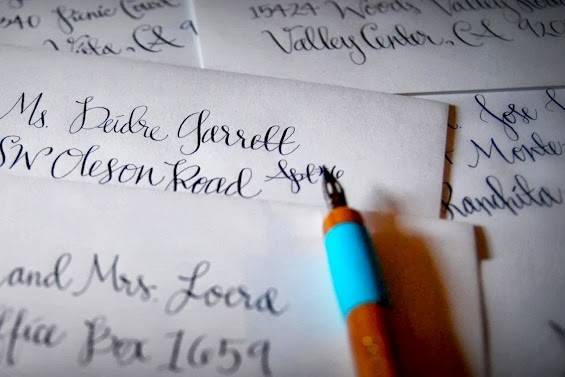 Picnic Court
Vista, CA 9
15424 Woods Valley Road
Valley Center, CA 920
Ms. Deidre Garrett
SW Oleson Road
Jose
Monte
Ranchita
and Mrs. Loera
ffice Box 1659